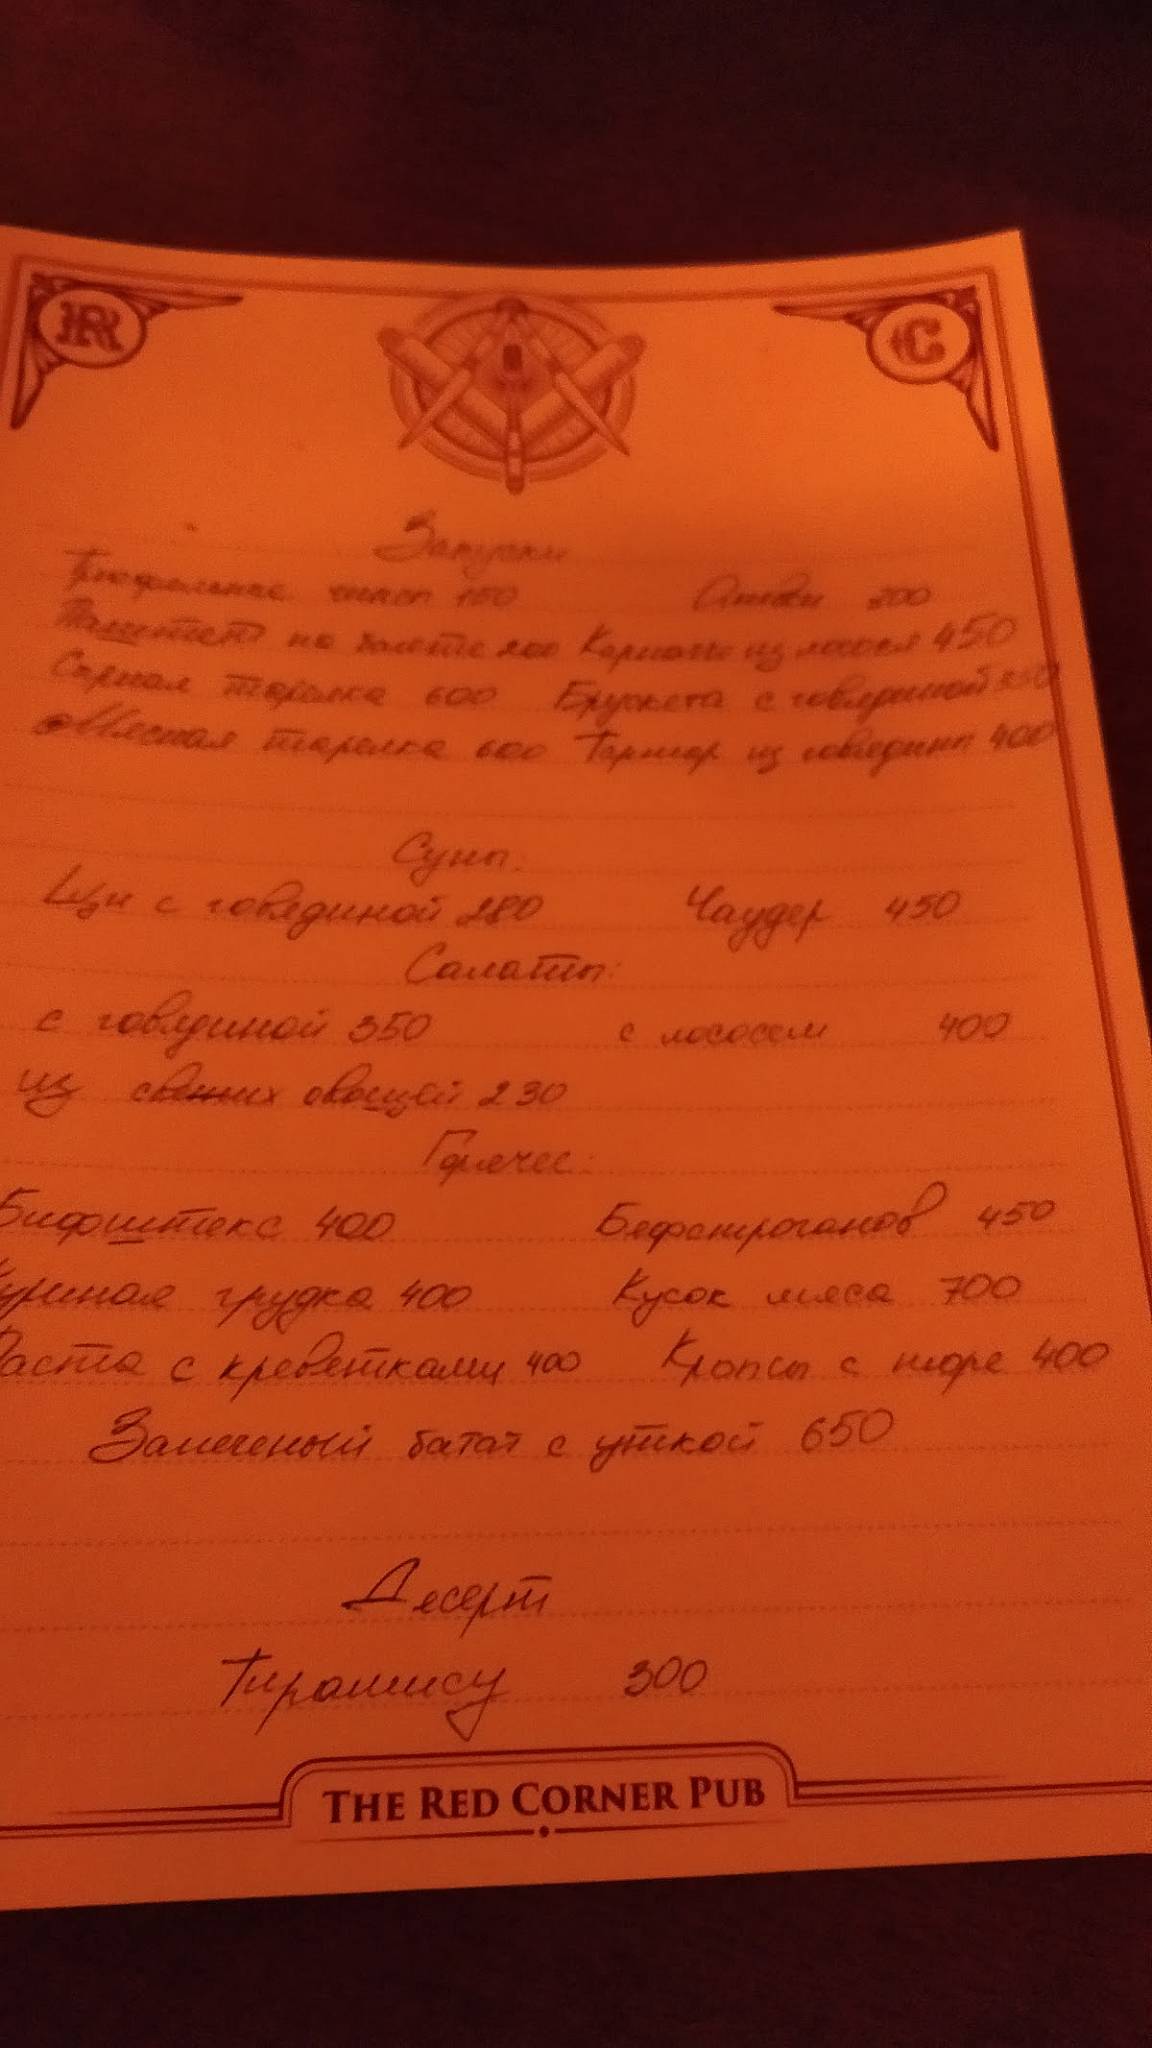 R C
Закуски
Трюфельные чипсы 150 Оливки 200
Паштет на багете 200 Карпаччо из лосося 450
Сырная тарелка 600 Брускета с говядиной 350
Мясная тарелка 600 Тартар из говядины 400
Супы:
Щи с говядиной 280 Чаудер 450
Салаты:
с говядиной 350 с лососем 400
из свежих овощей 230
Горячее:
Бифштекс 400 Бефстроганов 450
Куриная грудка 400 Кусок мяса 700
Паста с креветками 400 с пюре 400
Запеченый батат с уткой 650
Десерт
Тирамису 300
THE RED CORNER PUB